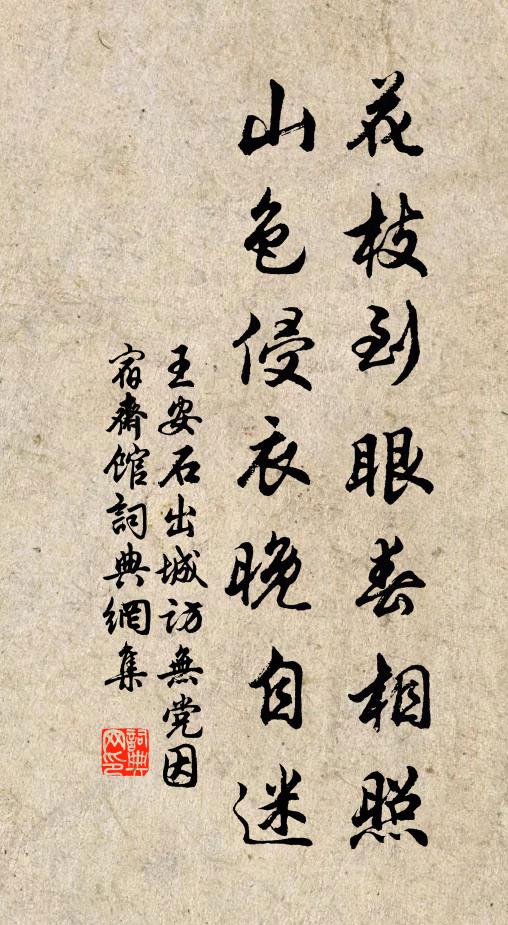 花枝到眼春相照
山色侵衣晚自迷
王安石出城訪無党因
宿齋館詞典網集
詞典
网印